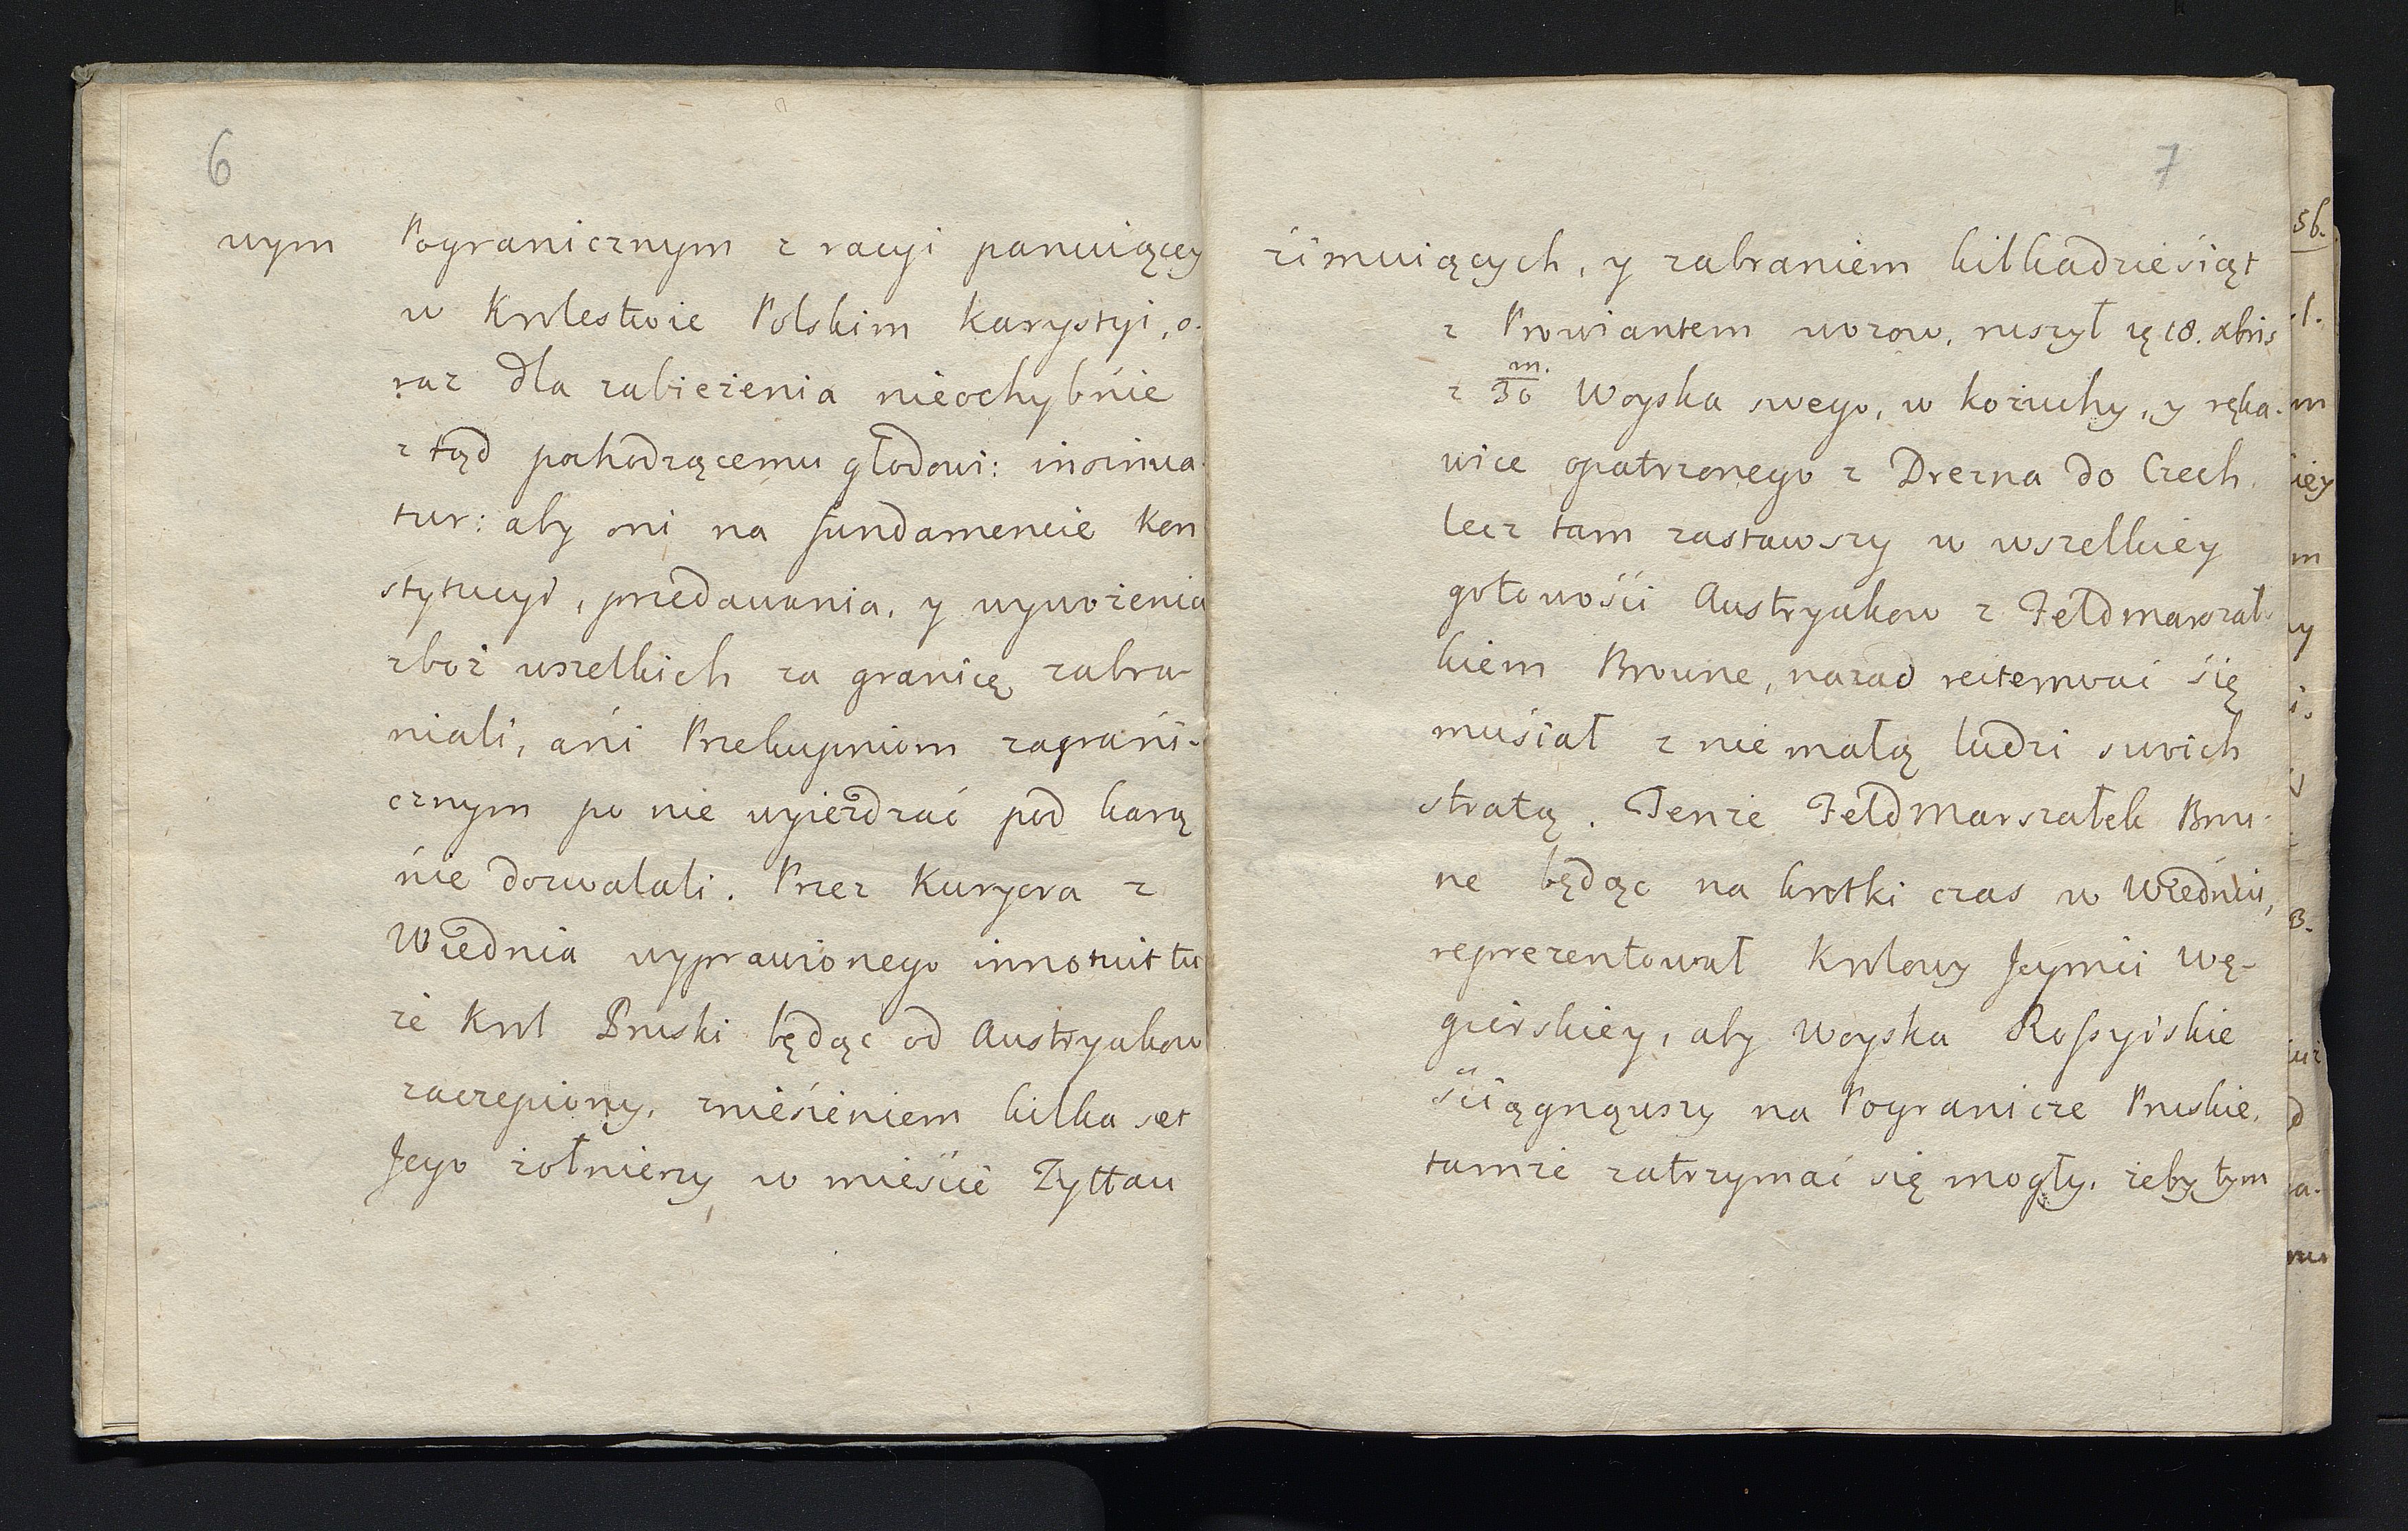 6
wym Pogranicznym z racyi panuiącey
w Krolestwie Polskim Karystyi, o-
raz dla zabieżenia nieochybnie
z tąd pochodzącemu głodowi: insinua-
tur: aby oni na fundamencie Kon
stytucyi, przedawania, y wywożenia
zboż wszelkich za granicę zabra-
niali, ani Przekupniom zagrani-
cznym po nie wyieżdżać pod karą
nie dozwalali. Przez Kuryera z
Wiednia wyprawionego innotuit tu
że Krol Pruski będąc od Austryakow
zaczepiony, zniesieniem kilka set
Jego żołnierzy w mieście Zyttau
7
zimuiących, y zabraniem kilkadziesiąt
z Prowiantem wozow, ruszył się 18. xbris
z 30 m. Woyska swego, w kożuchy, y ręka-
wice opatrzonego z Drezna do Czech.
lecz tam zastawszy w wszelkiey
gotowości Austryakow z Feldmarszał-
kiem Browne, nazad reiterować się
musiał z nie małą ludzi swoich
stratą. Tenże Feldmarszałek Brou-
ne będąc na krotki czas w Wiedniu,
reprezentował Krolowy Jeymci Wę-
gierskiey, aby Woyska Rossyiskie
ściągnąwszy na Pogranicze Pruskie,
tamże zatrzymać się mogły, żeby tym
56.